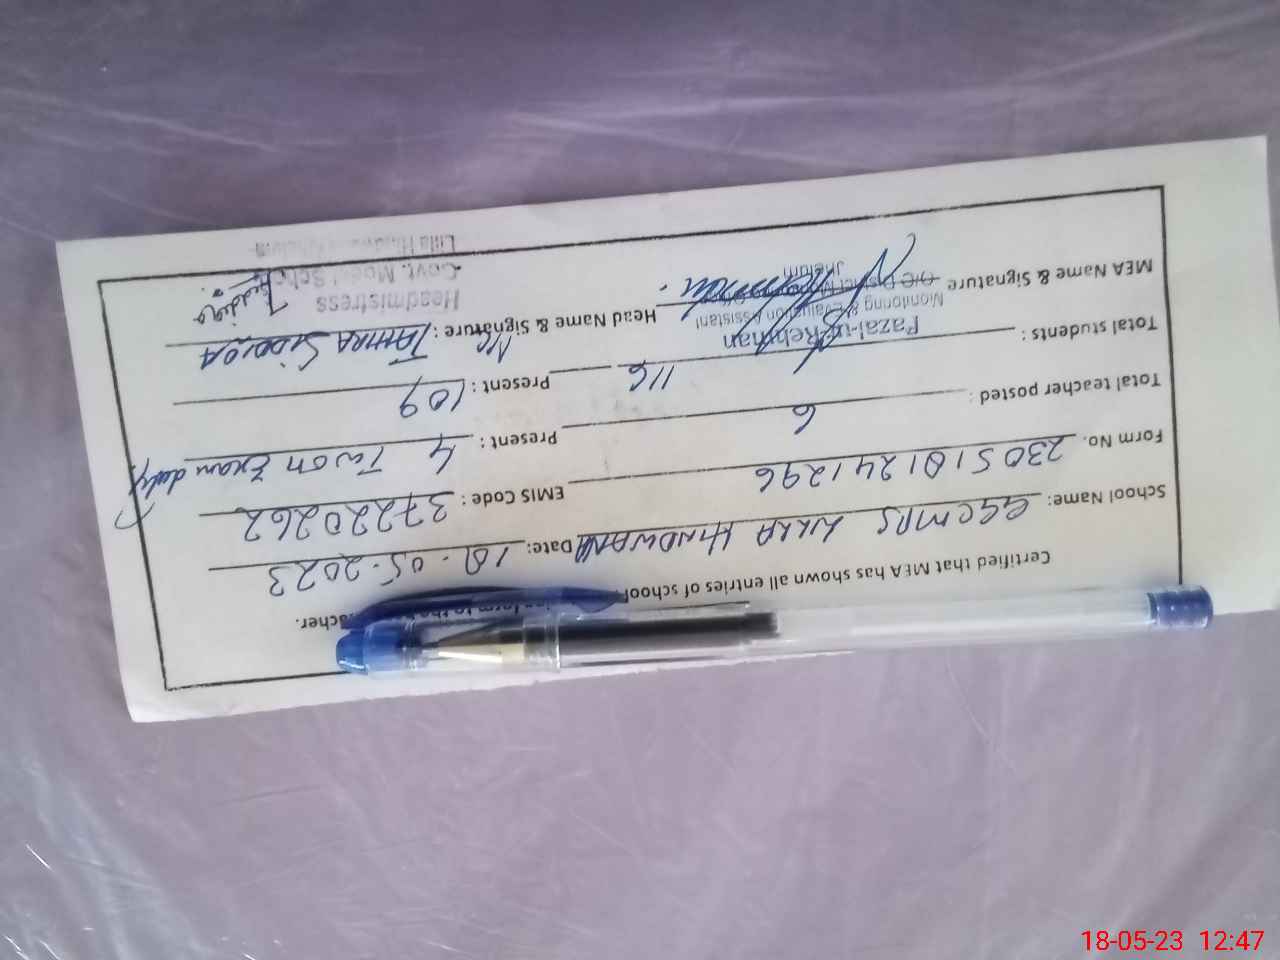 Certified that MEA has shown all entries of school form to the acher.
School Name: GGCMPS LILLA HINDWANA Date: 18-05-2023
Form No. 230518124 1296 EMIS Code: 37220262
Total teacher posted: 6 Present: 4 Two on Exam duty
Total students: 116 Present: 109
Fazal-ur-Rehman
Monitoring & Evaluation Assistant
O/O District Monitoring
Jhelum
MEA Name & Signature Head Name & Signature: TAHIRA SIDDIQA
Headmistress
Govt. Model School
Lilla Hindwana
18-05-23 12:47